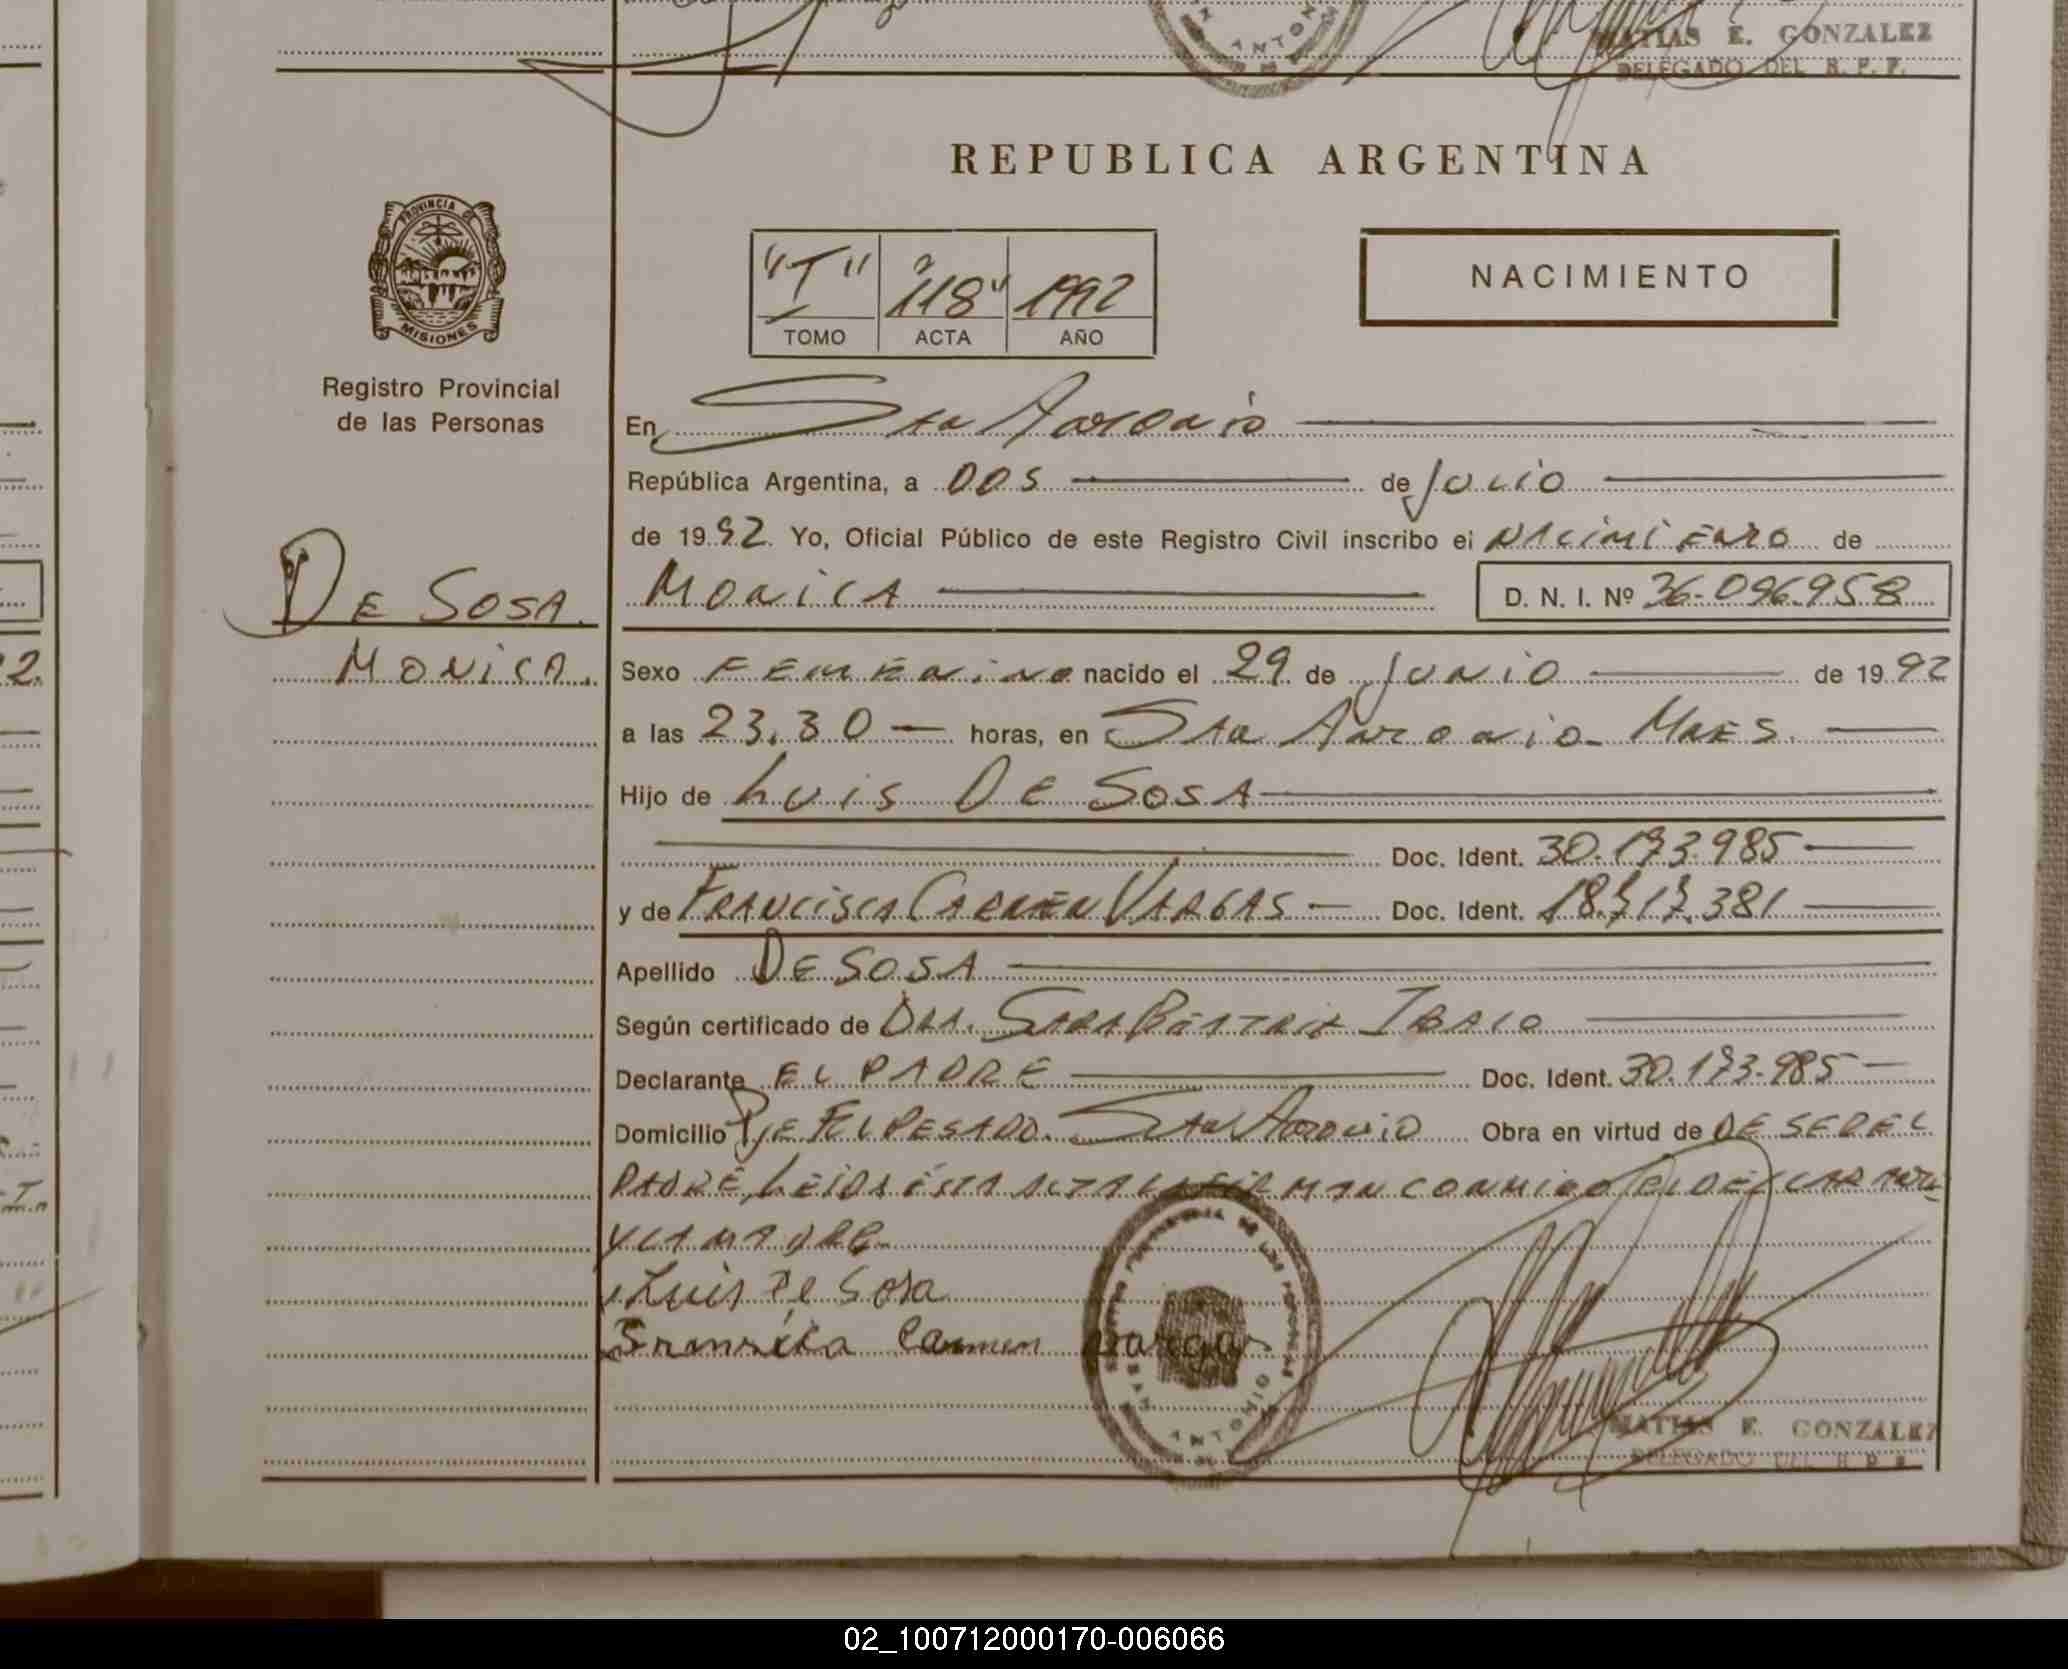 MATIAS E. GONZALEZ
DELEGADO DEL R. P. P.
REPUBLICA ARGENTINA
PROVINCIA DE
MISIONES
Registro Provincial
de las Personas
"I" "118" 1992
TOMO ACTA AÑO
NACIMIENTO
En San Antonio
República Argentina, a DOS de Julio
de 1992 Yo, Oficial Público de este Registro Civil inscribo el NACIMIENTO de
MONICA D. N. I. Nº 36.096.958
DE SOSA
MONICA.
Sexo FEMENINO nacido el 29 de JUNIO de 1992
a las 23.30 horas, en San Antonio - Mnes.
Hijo de LUIS DE SOSA
Doc. Ident. 30.173.985
y de FRANCISCA CARMEN VARGAS Doc. Ident. 18.717.381
Apellido DE SOSA
Según certificado de DRA. SARA BEATRIZ
Declarante EL PADRE Doc. Ident. 30.173.985
Domicilio Pje EL PESADO. SAN Antonio Obra en virtud de DE SER EL
PADRE, LEIDA ESTA ACTA LA FIRMAN CONMIGO EL DECLARANTE
Y LA MADRE
Luis De Sosa
Carmen Vargas
SAN ANTONIO
MATIAS E. GONZALEZ
DELEGADO DEL R. P. P.
02_100712000170-006066